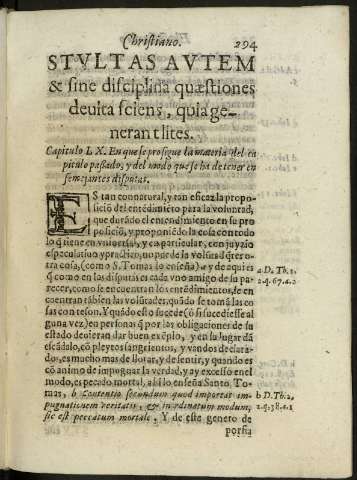 Christiano. 294
STVLTAS AVTEM
& sine disciplina quæstiones
deuita sciens, quia ge-
nerant lites.
Capitulo LX. En que se prosigue la materia del ca
pitulo passado, y del modo que se ha de tener en
semejantes disputas.
ES tan connatural, y tan eficaz la propo-
siciõ del entẽdimiẽto para la voluntad,
que durãdo el entendimiento en su pro
posiciõ, y proponiẽdo la cosa con todo
lo q̃ tiene en vniuersal, y en particular, con juyzio
especulatiuo y practico, no puede la volũtad q̃rer o-
tra cosa, (como S. Tomas lo enseña) a y de aqui es
q̃ como en las disputas es cada vno amigo de su pa-
recer, como se encuentran los entẽdimiẽtos, se en
cuentran tãbien las volũtades, quãdo se tomã las co
sas con teson. Y quãdo esto sucede (ò si sucediesse al
guna vez) en personas q̃ por las obligaciones de su
estado deuieran dar buen exẽplo, y en lugar dã
escãdalo, cõ pleytos sangrientos, y vandos declara-
dos, es mucho mas de llorar, y de sentir, y quando es
cõ animo de impugnar la verdad, y ay excesso en el
modo, es pecado mortal, assi lo enseña Santo To-
mas, b Contentio secundum quod importat im-
pugnationem veritatis, & inordinatum modum,
sic est peccatum mortale. Y de este genero de
porfia
a D. Th. 1.
2. q. 67. a. 2
b D. Th. 2.
2. q. 38. a. 1